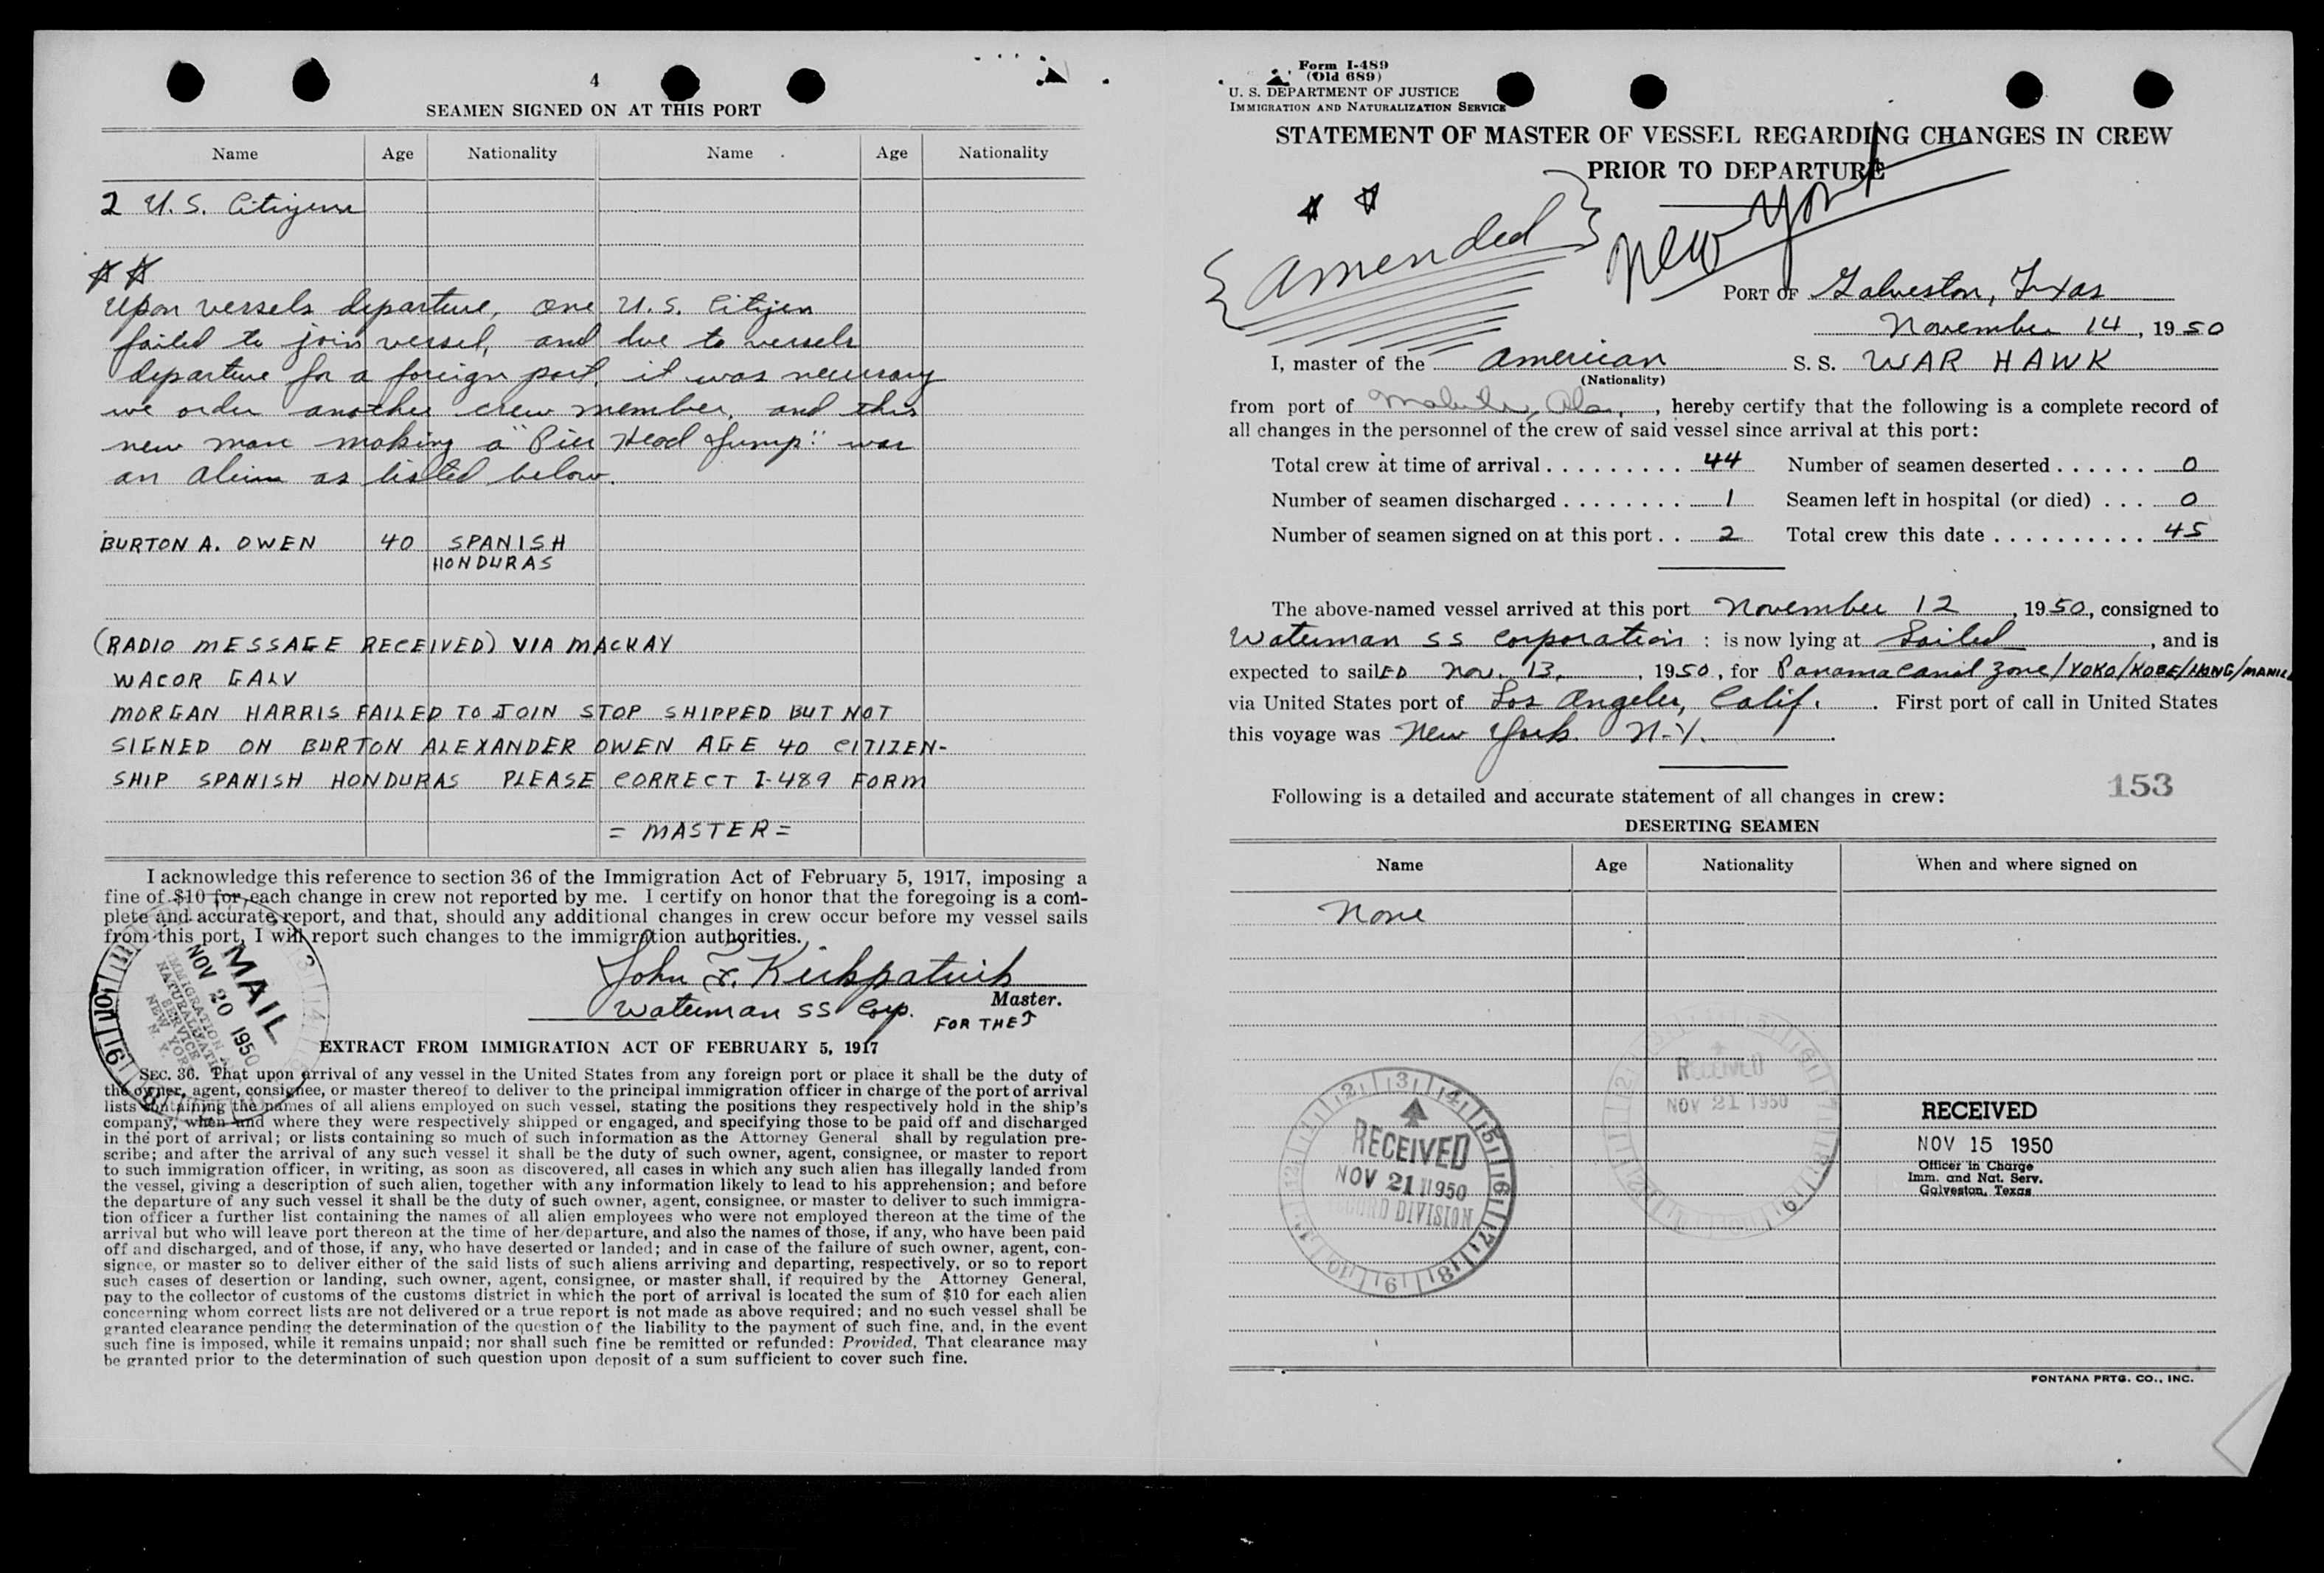 4
SEAMEN SIGNED ON AT THIS PORT
Name Age Nationality Name Age Nationality
2 U.S. Citizens
Upon vessels departure, one U.S. Citizen
failed to join vessel, and due to vessels
departure for a foreign port, it was necessary
we order another crew member, and this
new man making a "Pier Head Jump" was
an alien as listed below.
BURTON A. OWEN 40 SPANISH
HONDURAS
(RADIO MESSAGE RECEIVED) VIA MACKAY
WACOR GALV
MORGAN HARRIS FAILED TO JOIN STOP SHIPPED BUT NOT
SIGNED ON BURTON ALEXANDER OWEN AGE 40 CITIZEN-
SHIP SPANISH HONDURAS PLEASE CORRECT I-489 FORM
= MASTER =
I acknowledge this reference to section 36 of the Immigration Act of February 5, 1917, imposing a
fine of $10 for each change in crew not reported by me. I certify on honor that the foregoing is a com-
plete and accurate report, and that, should any additional changes in crew occur before my vessel sails
from this port, I will report such changes to the immigration authorities.
John F. Kirkpatrick
Master.
Waterman SS Corp.
FOR THE
MAIL
NOV 20 1950
IMMIGRATION
NATURALIZATION
SERVICE
NEW YORK
N. Y.
EXTRACT FROM IMMIGRATION ACT OF FEBRUARY 5, 1917
SEC. 36. That upon arrival of any vessel in the United States from any foreign port or place it shall be the duty of
the owner, agent, consignee, or master thereof to deliver to the principal immigration officer in charge of the port of arrival
lists containing the names of all aliens employed on such vessel, stating the positions they respectively hold in the ship's
company, when and where they were respectively shipped or engaged, and specifying those to be paid off and discharged
in the port of arrival; or lists containing so much of such information as the Attorney General shall by regulation pre-
scribe; and after the arrival of any such vessel it shall be the duty of such owner, agent, consignee, or master to report
to such immigration officer, in writing, as soon as discovered, all cases in which any such alien has illegally landed from
the vessel, giving a description of such alien, together with any information likely to lead to his apprehension; and before
the departure of any such vessel it shall be the duty of such owner, agent, consignee, or master to deliver to such immigra-
tion officer a further list containing the names of all alien employees who were not employed thereon at the time of the
arrival but who will leave port thereon at the time of her departure, and also the names of those, if any, who have been paid
off and discharged, and of those, if any, who have deserted or landed; and in case of the failure of such owner, agent, con-
signee, or master so to deliver either of the said lists of such aliens arriving and departing, respectively, or so to report
such cases of desertion or landing, such owner, agent, consignee, or master shall, if required by the Attorney General,
pay to the collector of customs of the customs district in which the port of arrival is located the sum of $10 for each alien
concerning whom correct lists are not delivered or a true report is not made as above required; and no such vessel shall be
granted clearance pending the determination of the question of the liability to the payment of such fine, and, in the event
such fine is imposed, while it remains unpaid; nor shall such fine be remitted or refunded: Provided, That clearance may
be granted prior to the determination of such question upon deposit of a sum sufficient to cover such fine.
Form I-489
(Old 689)
U. S. DEPARTMENT OF JUSTICE
IMMIGRATION AND NATURALIZATION SERVICE
STATEMENT OF MASTER OF VESSEL REGARDING CHANGES IN CREW
PRIOR TO DEPARTURE
{Amended}
New York
PORT OF Galveston, Texas
November 14, 1950
I, master of the American S. S. WAR HAWK
(Nationality)
from port of Mobile, Ala., hereby certify that the following is a complete record of
all changes in the personnel of the crew of said vessel since arrival at this port:
Total crew at time of arrival . . . . . . . . . 44 Number of seamen deserted . . . . . . 0
Number of seamen discharged . . . . . . . . 1 Seamen left in hospital (or died) . . . 0
Number of seamen signed on at this port . . 2 Total crew this date . . . . . . . . . . 45
The above-named vessel arrived at this port November 12, 1950, consigned to
Waterman SS Corporation : is now lying at Sailed, and is
expected to sailED Nov. 13, 1950, for Panama Canal Zone/YOKO/KOBE/HONG/MANILA
via United States port of Los Angeles, Calif. . First port of call in United States
this voyage was New York N-Y.
153
Following is a detailed and accurate statement of all changes in crew:
DESERTING SEAMEN
Name Age Nationality When and where signed on
None
RECEIVED
NOV 21 1950
RECORD DIVISION
RECEIVED
NOV 21 1950
RECEIVED
NOV 15 1950
Officer in Charge
Imm. and Nat. Serv.
Galveston, Texas
FONTANA PRTG. CO., INC.